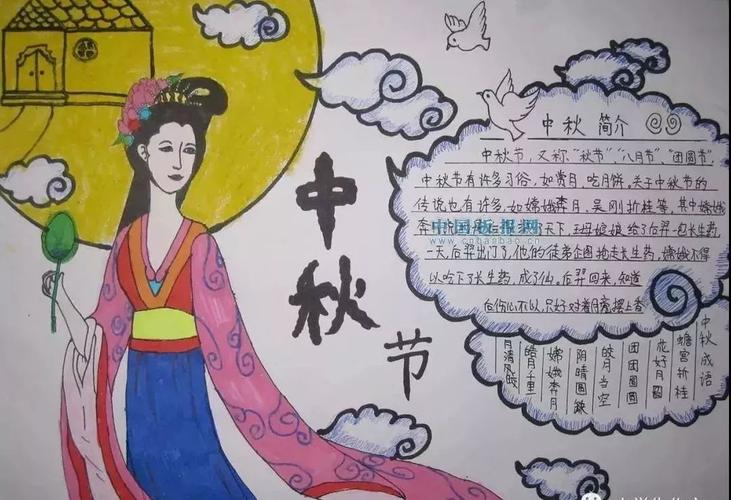 中秋节
中秋简介
中秋节，又称“秋节”、“八月节”、“团圆节”
中秋节有许多习俗，如赏月、吃月饼。关于中秋节的
传说也有许多，如嫦娥奔月，吴刚折桂等。其中嫦娥
奔 天下，王母娘娘给了后羿一包长生药
一天，后羿出门了，他的徒弟企图抢走长生药，嫦娥不得
以吟下了长生药，成了仙。后羿回来，知道
后伤心不以，只好对着月亮摆上香
中国板报网
www.cnbanbao.cn
中秋成语
蟾宫折桂
花好月圆
团团圆圆
皎月当空
阴晴圆缺
嫦娥奔月
皓月千
月清风皎